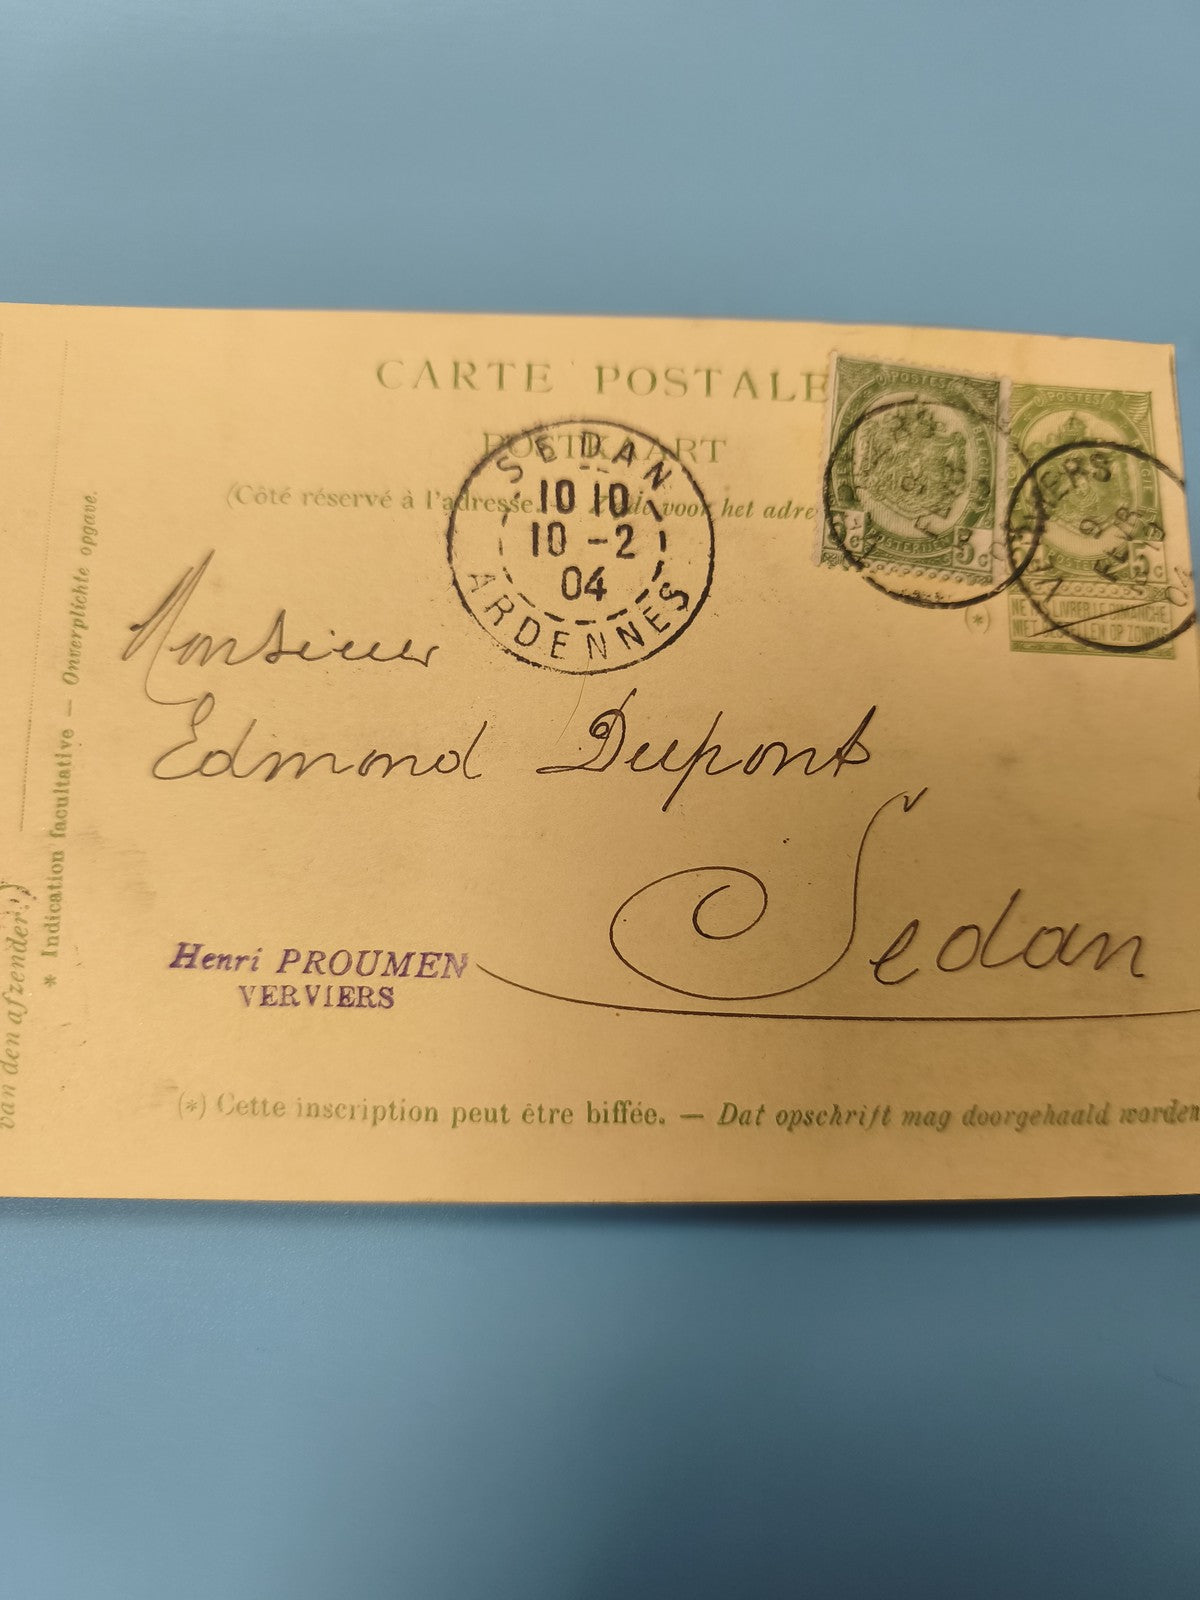 CARTE POSTALE
POSTKAART
(Côté réservé à l'adresse. — Zijde voor het adre
SEDAN
10 10
10 - 2
04
ARDENNES
POSTES
5 c
POSTES
5 c
VERVIERS
9
FEVR
04
(*)
NE PAS LIVRER LE DIMANCHE
NIET BESTELLEN OP ZONDAG
Monsieur
Edmond Dupont
Sedan
Henri PROUMEN
VERVIERS
(*) Cette inscription peut être biffée. — Dat opschrift mag doorgehaald worden
* Indication facultative — Onverplichte opgave.
van den afzender.)